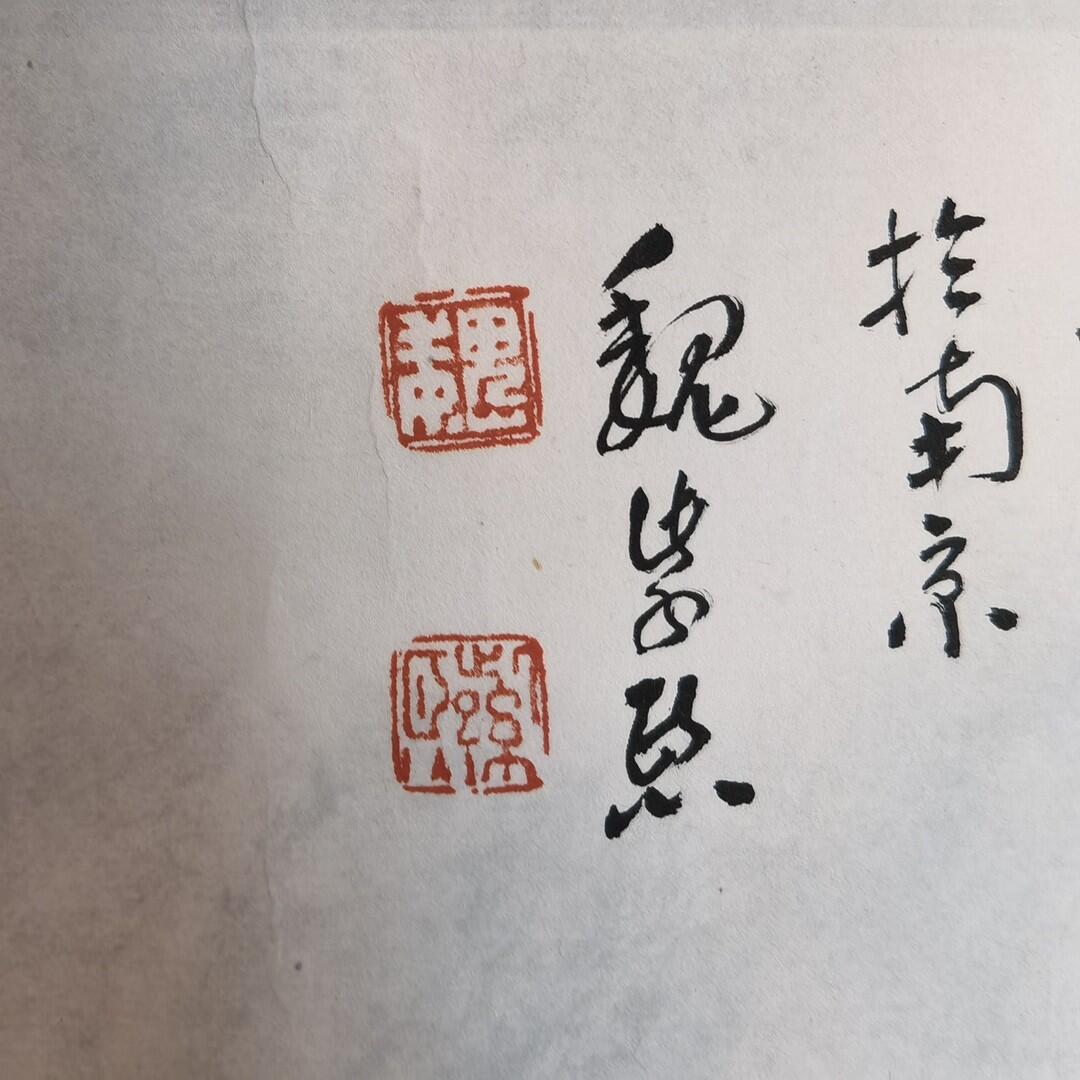 於南京
魏紫熙
魏
紫熙